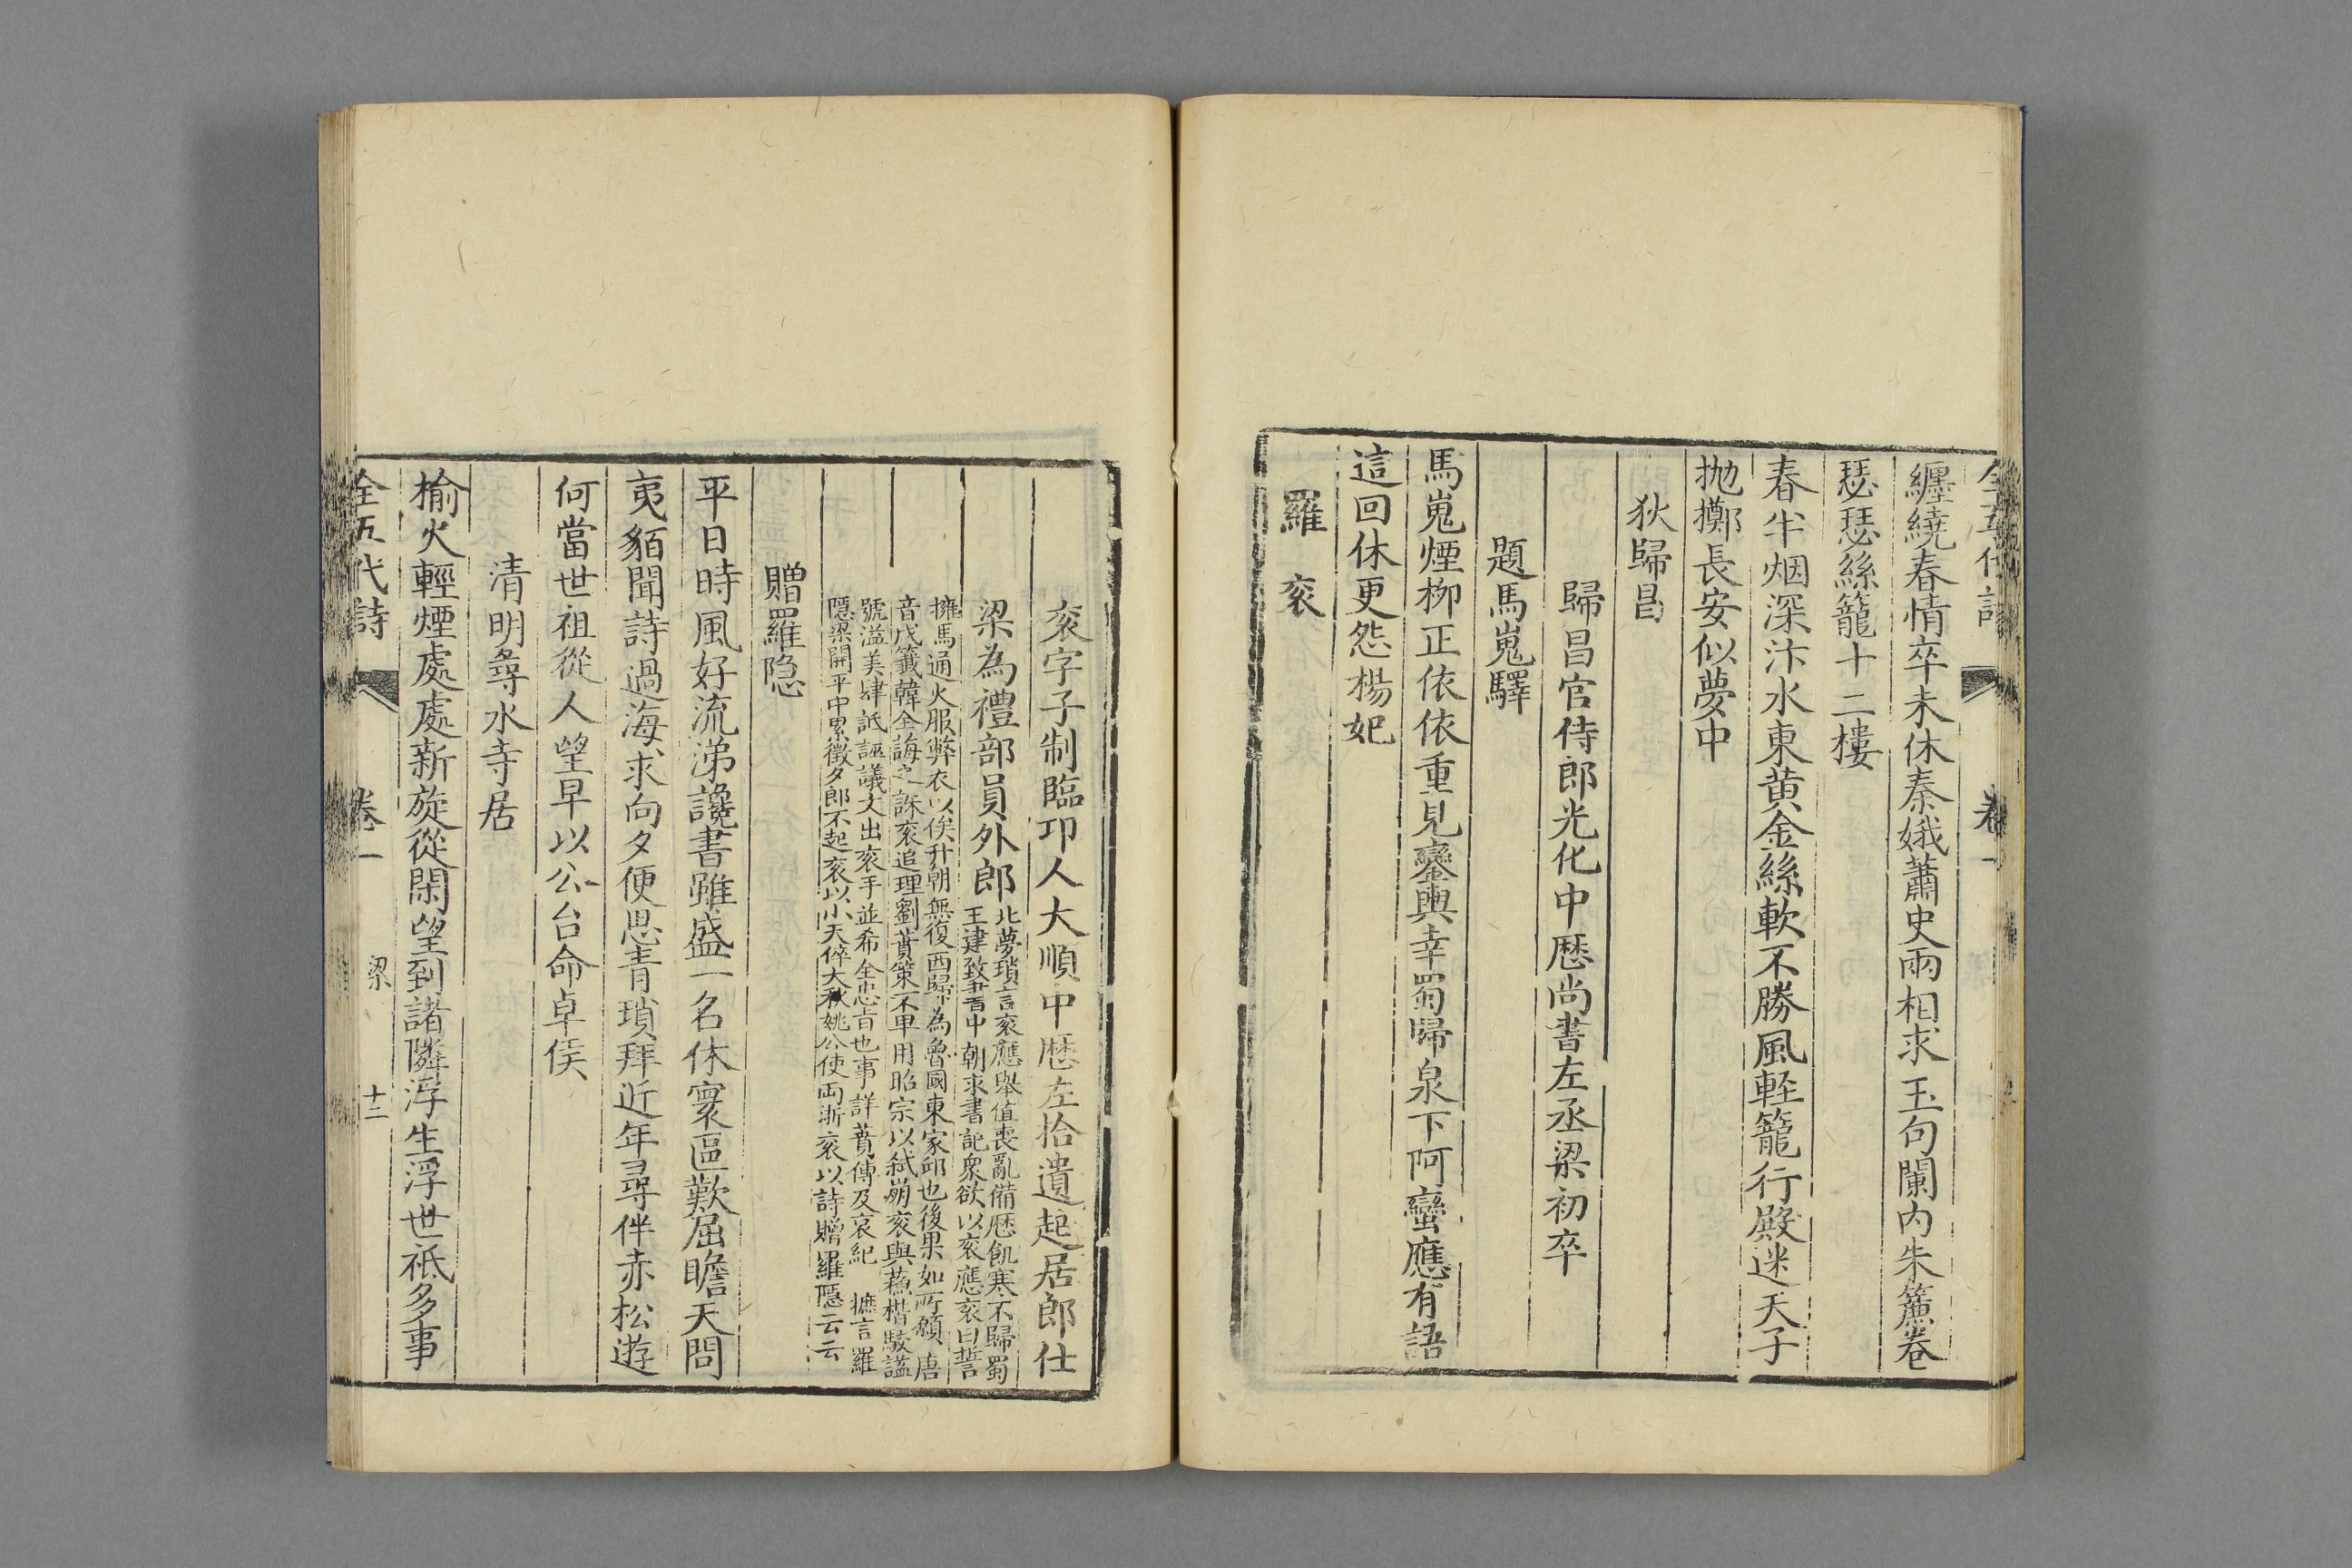 全五代詩 卷一
纏繞春情卒未休秦娥蕭史兩相求玉句闌内朱簾卷
瑟瑟絲籠十二樓
春半烟深汴水東黄金絲軟不勝風輕籠行殿迷天子
抛擲長安似夢中
狄歸昌
歸昌官侍郎光化中歷尚書左丞梁初卒
題馬嵬驛
馬嵬煙柳正依依重見鑾輿幸蜀歸泉下阿蠻應有語
這回休更怨楊妃
羅衮
衮字子制臨邛人大順中歷左拾遺起居郎仕
梁為禮部員外郎
北夢瑣言衮應舉值喪亂備歷飢寒不歸蜀
王建致書中朝求書記衆欲以衮應衮曰誓
擁馬通火服弊衣以俟升朝無復西歸為魯國東家邱也後果如所願 唐
音戊籤韓全誨之誅衮追理劉蕡策不畢用昭宗以弑崩衮與蘇楷駁謚
號溢美肆詆誣議文出衮手並希全忠旨也事詳蕡傳及哀紀 摭言羅
隱梁開平中累徵夕郎不起衮以小天倅大秋姚公使兩浙衮以詩贈羅隱云云
贈羅隐
平日時風好流涕讒書雖盛一名休寰區歎屈瞻天問
夷貊聞詩過海求向夕便思青瑣拜近年尋伴赤松遊
何當世祖從人望早以公台命卓侯
清明尋水寺居
榆火輕煙處處新旋從閑望到諸隣浮生浮世祇多事
全五代詩 卷一 梁 十二